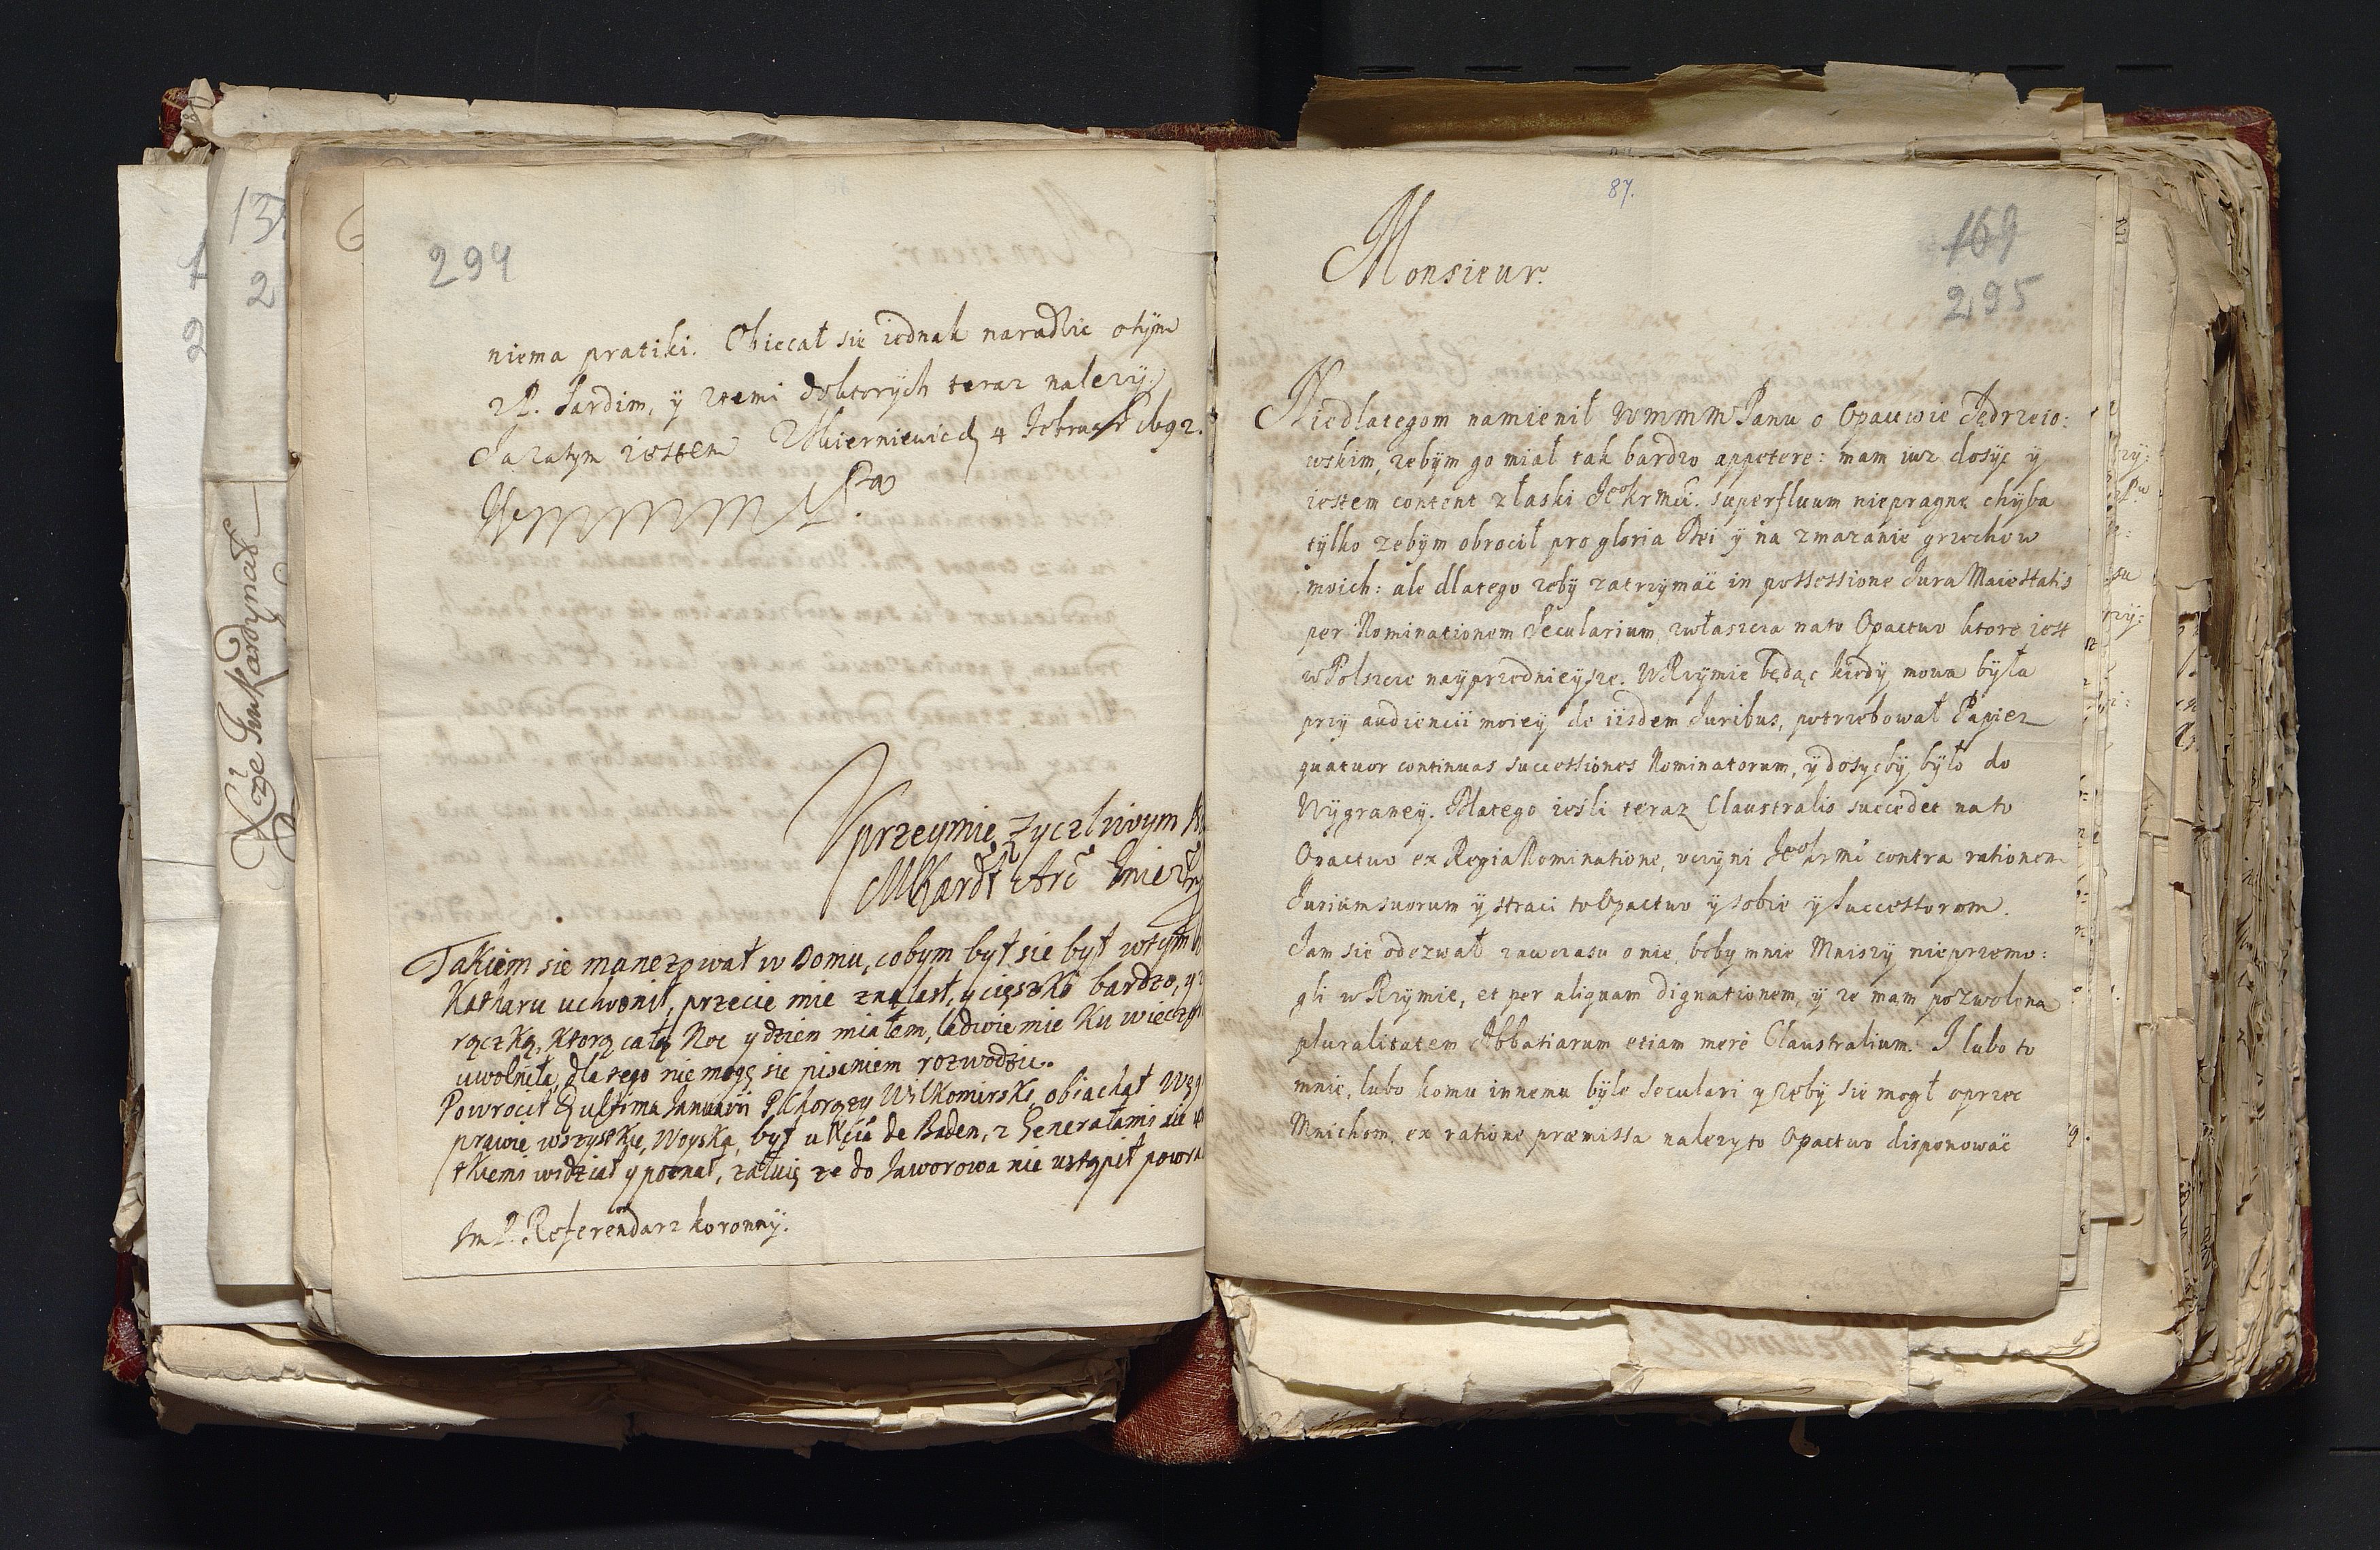 294
niema pratiki. Obiecał sie iednak naradzic otÿm
zP. Jardim, ÿ ztemi doktorÿch teraz nalezÿ.
Ja zatym iestem ZSkierniewic d 4 Februar 1692.
WMMMM Pa
Uprzeymie zyczliwym
MKardł Arc̃ Gniez
Takiem sie manezował w Domu, cobym był sie był wtym
Katharu uchronił, przecie mie znalasł, y cięszko bardzo, y
rączką, ktorą całą Noc y dzien miałem, ledwie mie ku wieczo
uwolniła, dla tego nie mogę sie pisaniem rozwodzic.
Powrocił d ultima Januarii P. Chorąży Wilkomirski, obiachał
prawie wszystkie Woyska, był u Xcia de Baden, z Generałami sie
tkiemi widział y poznał, załuię ze do Jaworowa nie ustąpił
Im P. Referendarz koronnÿ.
Xże Imkardynał
137
2
87.
169
295
Monsieur.
Niedlategom namienił WMMMPanu o Opactwie Jędrzeio:
wskim, zebÿm go miał tak bardzo appetere: mam iuz dosÿc ÿ
iestem content złaski Jeokrmći. superfluum niepragnę chÿba
tÿlko zebÿm obrocił pro gloria Dei ÿ na zmazanie grzechow
moich: ale dlatego zebÿ zatrzymać in possessione Jura Maiestatis
per Nominationem Secularium, zwłaszcza nato Opactwo ktore iest
wPolszcze nayprzednieÿsze. WRzÿmie będąc kiedÿ mowa bÿła
przÿ audiencii moieÿ de iisdem Juribus, potrzebował Papiez
quatuor continuas successiones Nominatorum, ÿ dosÿcbÿ bÿło do
Wÿgraney. Dlatego ieśli teraz Claustralis succedet nato
Opactwo ex Regia Nominatione, uczÿni Jeokrmć contra rationem
Jurium suorum ÿ straci toOpactwo ÿ sobie ÿ Successorom.
Jam sie odezwał zawczasu o nie, bobÿ mnie Mniszÿ nieprzemo:
gli wRzÿmie, et per aliquam dignationem, ÿ ze mam pozwolona
pluralitatem Abbatiarum etiam merè Claustralium. I lubo to
mnie, lubo komu innemu bÿle Seculari y zebÿ sie mogł oprzec
Mnichom, ex ratione præmissa nalezÿ to Opactwo disponować